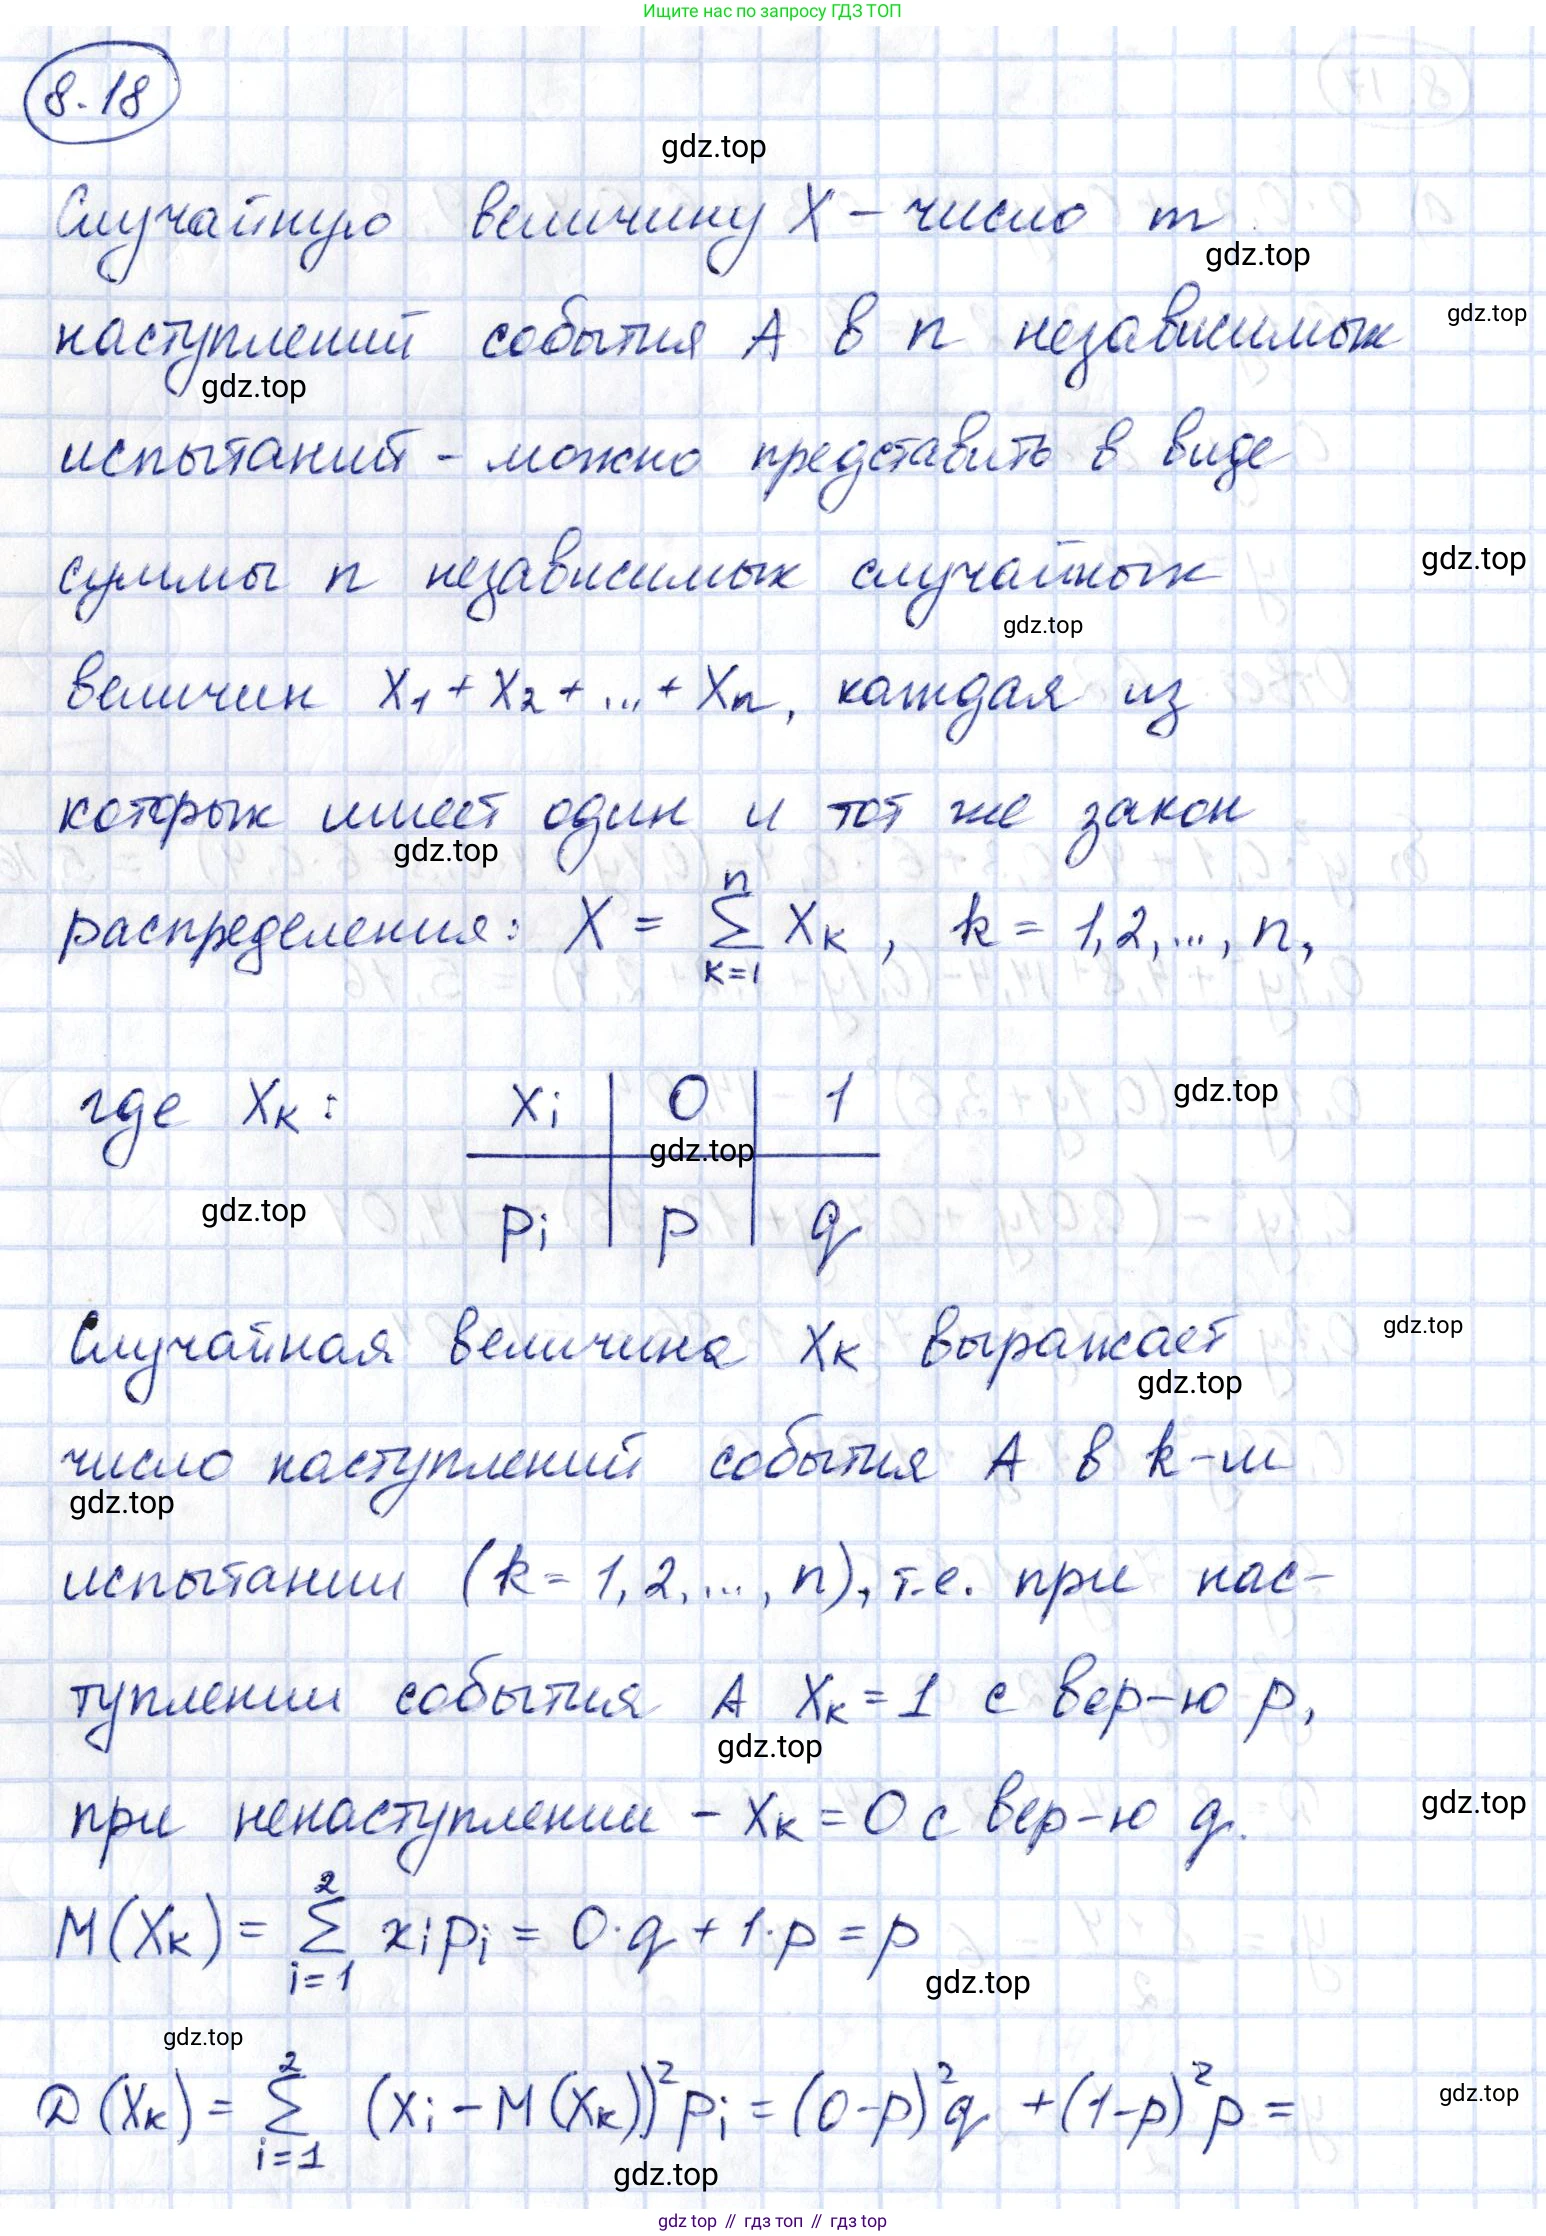 Ищите нас по запросу ГДЗ ТОП
8.18
gdz.top
Случайную величину X – число m
gdz.top
gdz.top
наступлений события A в n независимых
gdz.top
испытаний – можно представить в виде
суммы n независимых случайных
gdz.top
gdz.top
величин X₁ + X₂ + ... + Xₙ, каждая из
которых имеет один и тот же закон
gdz.top
распределения: X = ∑ₖ₌₁ⁿ Xₖ, k = 1,2,...,n,
где Xₖ: xᵢ | 0 | 1
gdz.top
gdz.top
gdz.top
pᵢ | p | q
Случайная величина Xₖ выражает
gdz.top
gdz.top
число наступлений события A в k-м
gdz.top
испытании (k = 1,2,...,n), т.е. при нас-
туплении события A Xₖ = 1 с вер-ю p,
gdz.top
при ненаступлении – Xₖ = 0 с вер-ю q.
gdz.top
M(Xₖ) = ∑ᵢ₌₁² xᵢpᵢ = 0·q + 1·p = p
gdz.top
gdz.top
D(Xₖ) = ∑ᵢ₌₁² (xᵢ – M(Xₖ))²pᵢ = (0-p)²q + (1-p)²p =
gdz.top
gdz.top
gdz top // гдз топ // гдз top